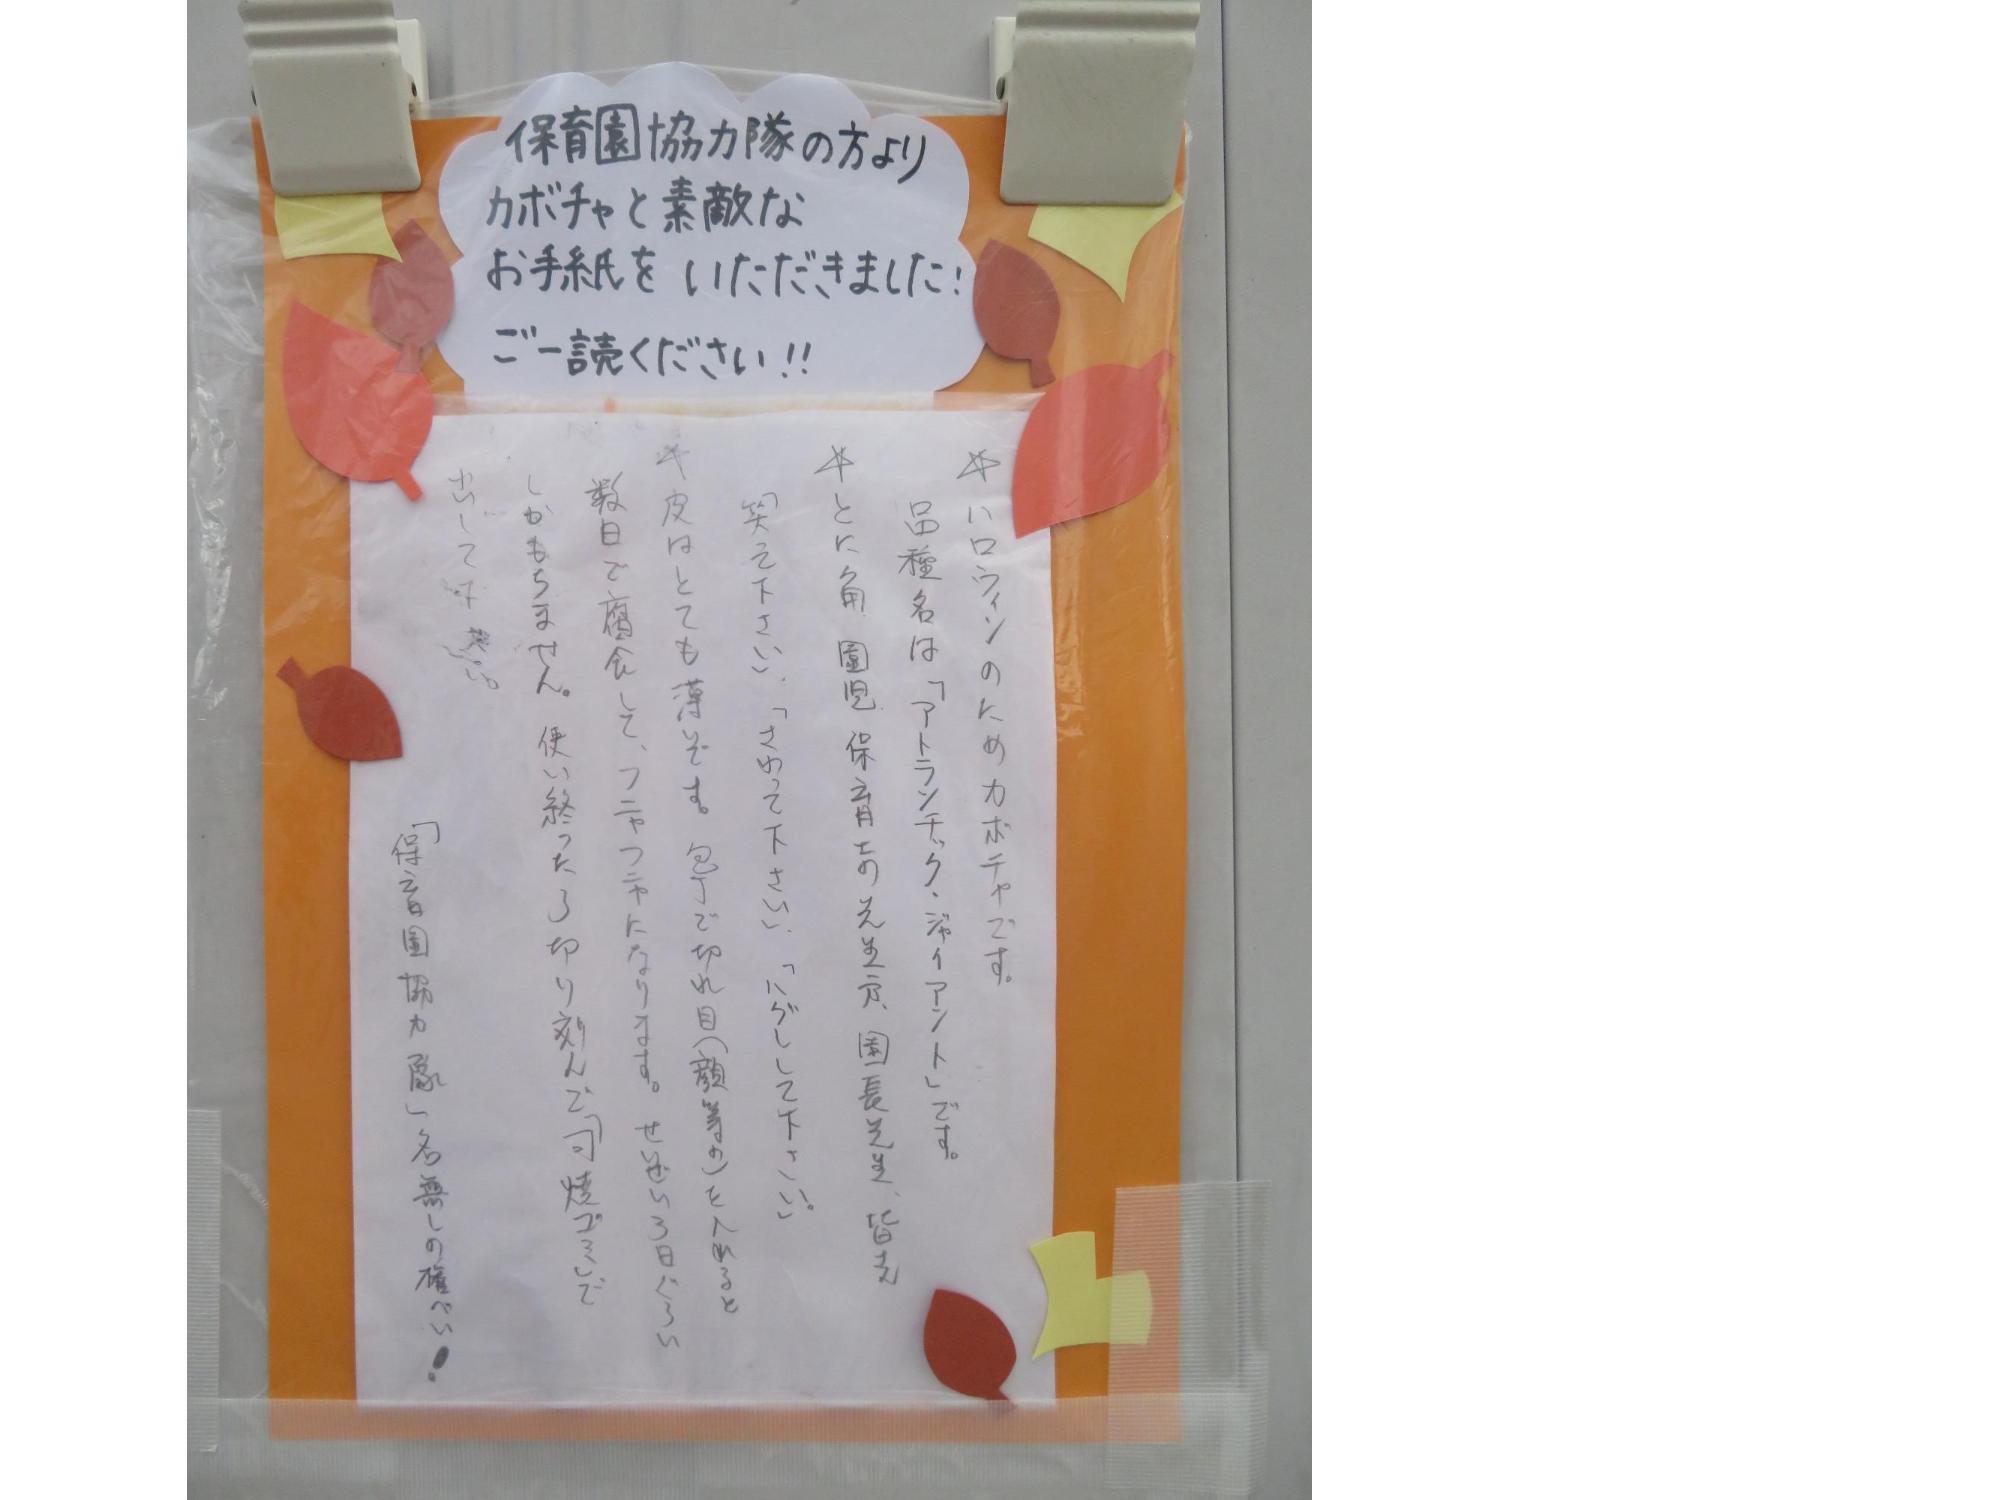 保育園協力隊の方より
カボチャと素敵な
お手紙を いただきました!
ご一読ください!!
☆ハロウィンのためカボチャです。
品種名は「アトランチック・ジャイアント」です。
☆とに角、園児、保育士の先生方、園長先生、皆え
「笑って下さい」、「さわって下さい」、「ハグしして下さい」。
☆皮はとても薄いです。包丁で切れ目(顔等の)を入れると
数日で腐食して、フニャフニャになります。せいぜい3日ぐらい
しかもちません。使い終ったら切り刻んで「可燃ゴミ」で
出して下さい。
「保育園協力隊」名無しの権べい!